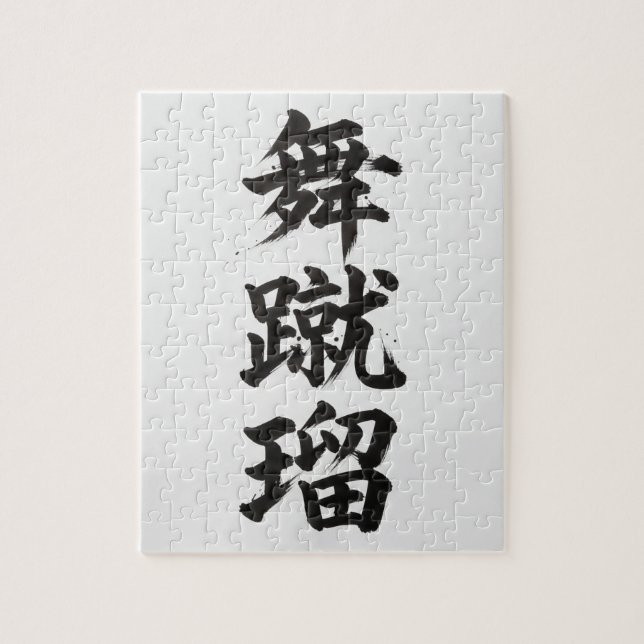 舞蹴瑠